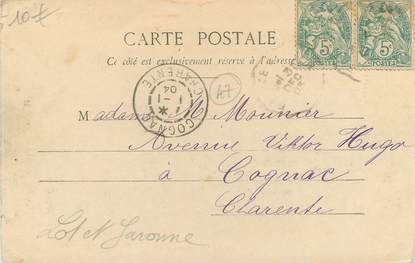 -10F
CARTE POSTALE
Ce côté est exclusivement réservé à l'adresse
5c POSTES
5c POSTES
COGNAC
CHARENTE
04
A7
Madame M. Mounier
Avenue Viktor Hugo
à Cognac
Charente
Lot et Garonne